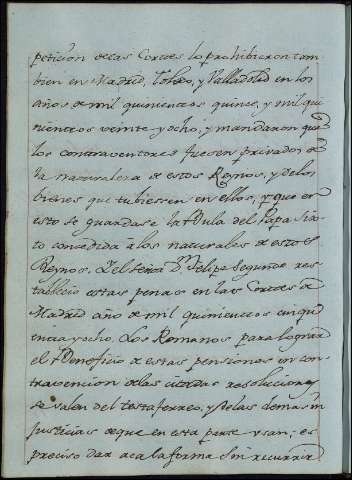 peticion de las Cortes lo prohibieron tam
bien en Madrid, Toledo, y Valladolid en los
años de mil quinientos quince, y mil qui
nientos veinte y ocho, y mandaron que
los contraventores fuesen privados de
la naturaleza de estos Reynos, y de los
bienes que tubiesen en ellos, y que en
esto se guardase la Bula del Papa Six
to concedida à los naturales de estos
Reynos. Y el Señor Dn. Felipe Segundo res
tableció estas penas en las Cortes de
Madrid año de mil quinientos cinque
nta y ocho. Los Romanos para lograr
el Beneficio de estas pensiones en con
travencion de las citadas resoluciones
se valen del testaferreo, y de las demas in
justicias de que en esta parte usan; es
preciso dar aca la forma sin recurrir